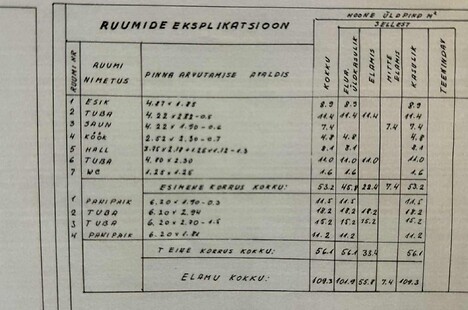 RUUMIDE EKSPLIKATSIOON
HOONE ÜLDPIND M²
SELLEST
RUUMI NR
RUUMI NIMETUS
PINNA ARVUTAMISE AVALDIS
KOKKU
ELUR. ÜLDKASULIK
ELAMIS
MITTE ELAMIS
KASULIK
TEENINDAV
1 ESIK 4.87 x 1.85 8.9 8.9 8.9
2 TUBA 4.22 x 2.82-0.5 11.4 11.4 11.4 11.4
3 SAUN 4.22 x 1.90-0.6 7.4 7.4 7.4
4 KÖÖK 2.52 x 2.30-0.7 4.8 4.8 4.8
5 HALL 8.1 8.1 8.1
6 TUBA 4.80 x 2.30 11.0 11.0 11.0 11.0
7 WC 1.25 x 1.25 1.6 1.6 1.6
ESIMENE KORRUS KOKKU: 53.2 45.8 22.4 7.4 53.2
1 PANIPAIK 6.20 x 1.90-0.3 11.5 11.5 11.5
2 TUBA 6.20 x 2.94 18.2 18.2 18.2 18.2
3 TUBA 6.20 x 2.70-1.5 15.2 15.2 15.2 15.2
4 PANIPAIK 6.20 x 1.81 11.2 11.2 11.2
TEINE KORRUS KOKKU: 56.1 56.1 33.4 56.1
ELAMU KOKKU: 109.3 101.9 55.8 7.4 109.3